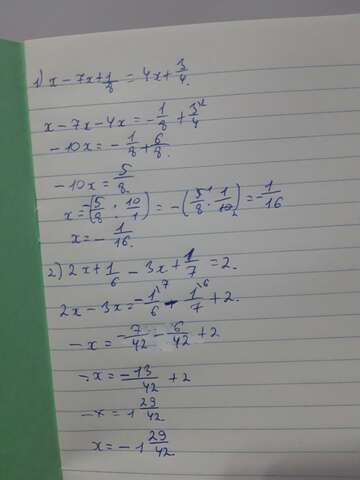 1) x - 7x + 1/8 = 4x + 3/4
x - 7x - 4x = - 1/8 + 3/4
- 10x = - 1/8 + 6/8
- 10x = 5/8
x = -(5/8 : 10/1) = -(5/8 · 1/10) = - 1/16
x = - 1/16.
2) 2x + 1/6 - 3x + 1/7 = 2.
2x - 3x = - 1/6 - 1/7 + 2.
- x = - 7/42 - 6/42 + 2
- x = - 13/42 + 2
- x = 1 29/42
x = - 1 29/42